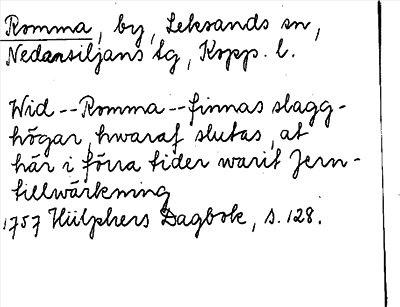 Romma, by, Leksands sn,
Nedansiljans tg, Kopp. l.
Wid -- Romma -- finnas slagg-
högar, hwaraf slutas, at
här i förra tider warit Jern-
tillwärkning
1757 Hülphers Dagbok, s. 128.